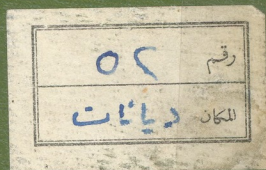 رقم ٥٢
المكان ديانات